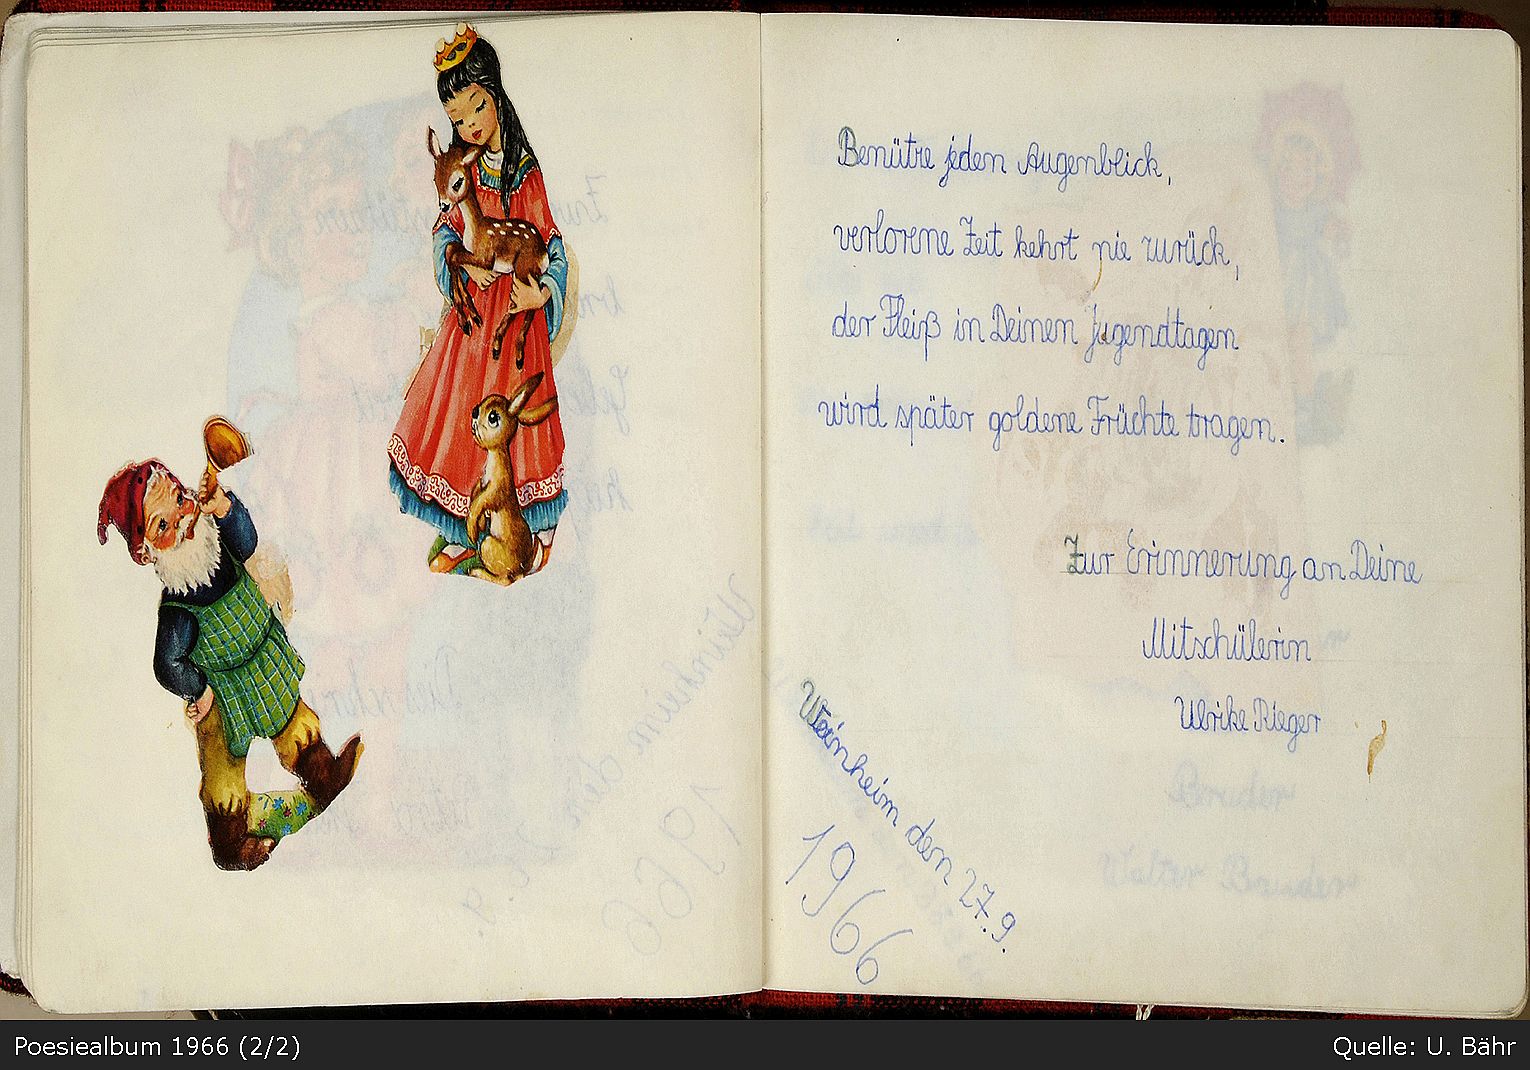 Benütze jeden Augenblick,
verlorene Zeit kehrt nie zurück,
der Fleiß in Deinen Jugendtagen
wird später goldene Früchte tragen.
Zur Erinnerung an Deine
Mitschülerin
Ulrike Rieger
Weinheim den 27.9.
1966
Bruder
Walter Bruder
Poesiealbum 1966 (2/2)
Quelle: U. Bähr